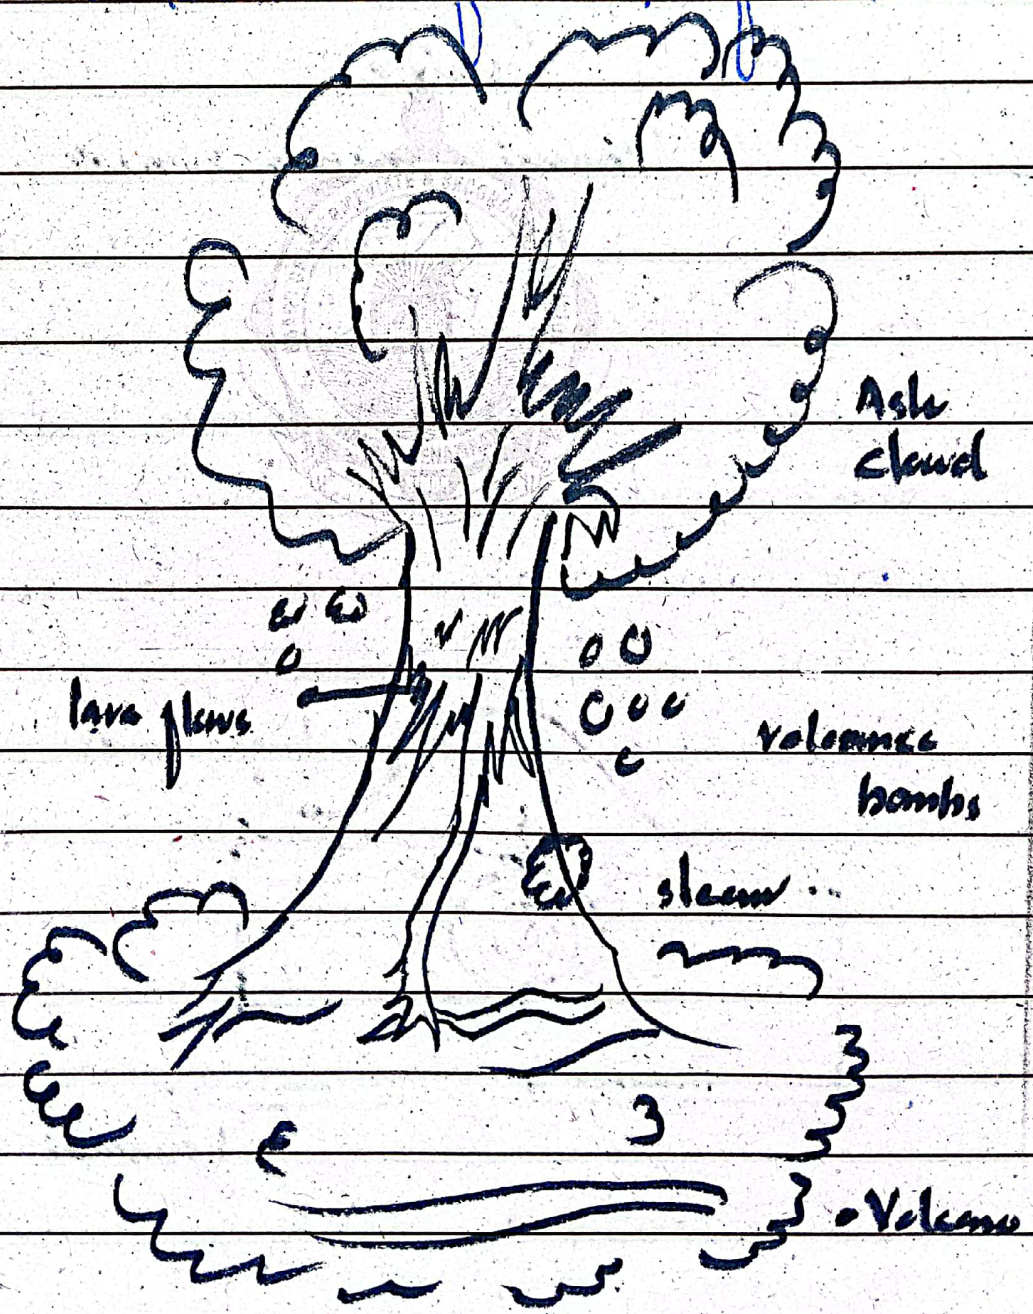 Ash
cloud
lava flows
volcanic
bombs
steam
Volcano